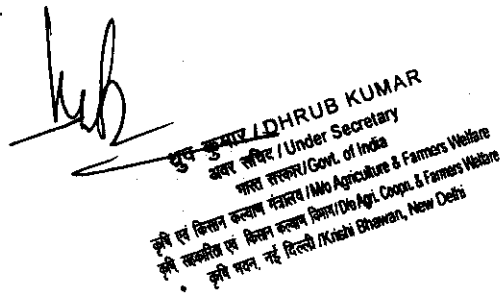 ध्रुव कुमार/DHRUB KUMAR
अवर सचिव/Under Secretary
भारत सरकार/Govt. of India
कृषि एवं किसान कल्याण मंत्रालय/M/o Agriculture & Farmers Welfare
कृषि सहकारिता एवं किसान कल्याण विभाग/D/o Agri. Coopn. & Farmers Welfare
कृषि भवन, नई दिल्ली/Krishi Bhawan, New Delhi